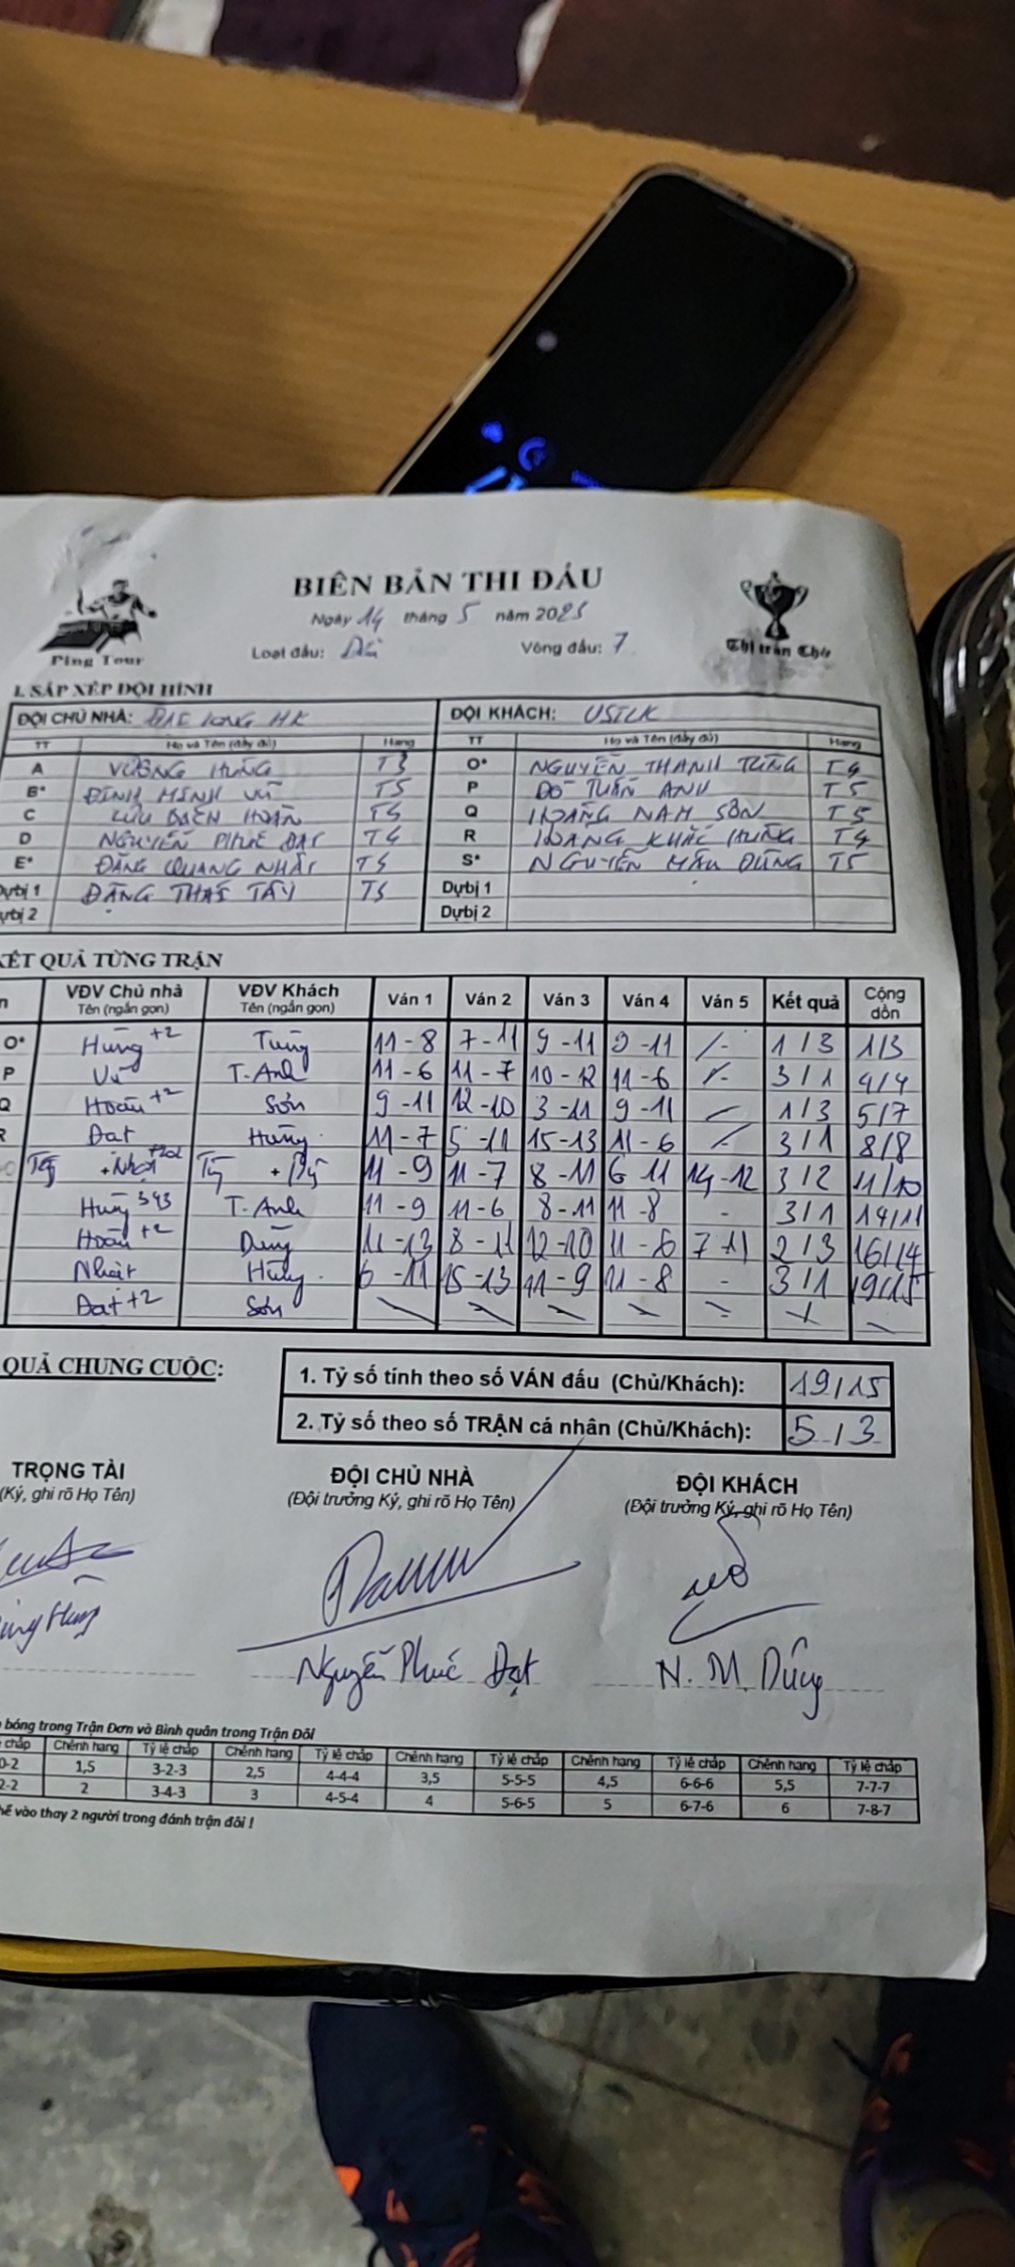 BIÊN BẢN THI ĐẤU
Ngày 14 tháng 5 năm 2025
Ping Tour
Loạt đấu: Vòng đấu: 7
Thị trấn Chờ
I. SẮP XẾP ĐỘI HÌNH
ĐỘI CHỦ NHÀ: ĐẠI LONG HK ĐỘI KHÁCH: USILK
TT Họ và Tên (đầy đủ) Hạng TT Họ và Tên (đầy đủ) Hạng
A VƯƠNG HÙNG T3 O* NGUYỄN THANH TÙNG T4
B* ĐINH MINH VŨ T5 P ĐỖ TUẤN ANH T5
C LƯU HOÀN Q HOÀNG NAM SƠN T5
D NGUYỄN PHÚC ĐẠT T4 R HOÀNG KHẮC HÙNG T4
E* ĐẶNG QUANG NHẬT T5 S* NGUYỄN MẬU DŨNG T5
Dựbị 1 ĐẶNG THÁI TÂY Dựbị 1
bị 2 Dựbị 2
KẾT QUẢ TỪNG TRẬN
VĐV Chủ nhà VĐV Khách Ván 1 Ván 2 Ván 3 Ván 4 Ván 5 Kết quả Cộng dồn
Tên (ngắn gọn) Tên (ngắn gọn)
O* Hùng +2 Tùng 11-8 7-11 9-11 9-11 - 1/3 1/3
P Vũ T.Anh 11-6 11-7 10-12 11-6 - 3/1 4/4
Q Hoàn +2 Sơn 9-11 12-10 3-11 9-11 1/3 5/7
R Đạt Hùng 11-7 5-11 15-13 11-6 3/1 8/8
+Nhật + 11-9 11-7 8-11 6 11 14-12 3/2 11/10
Hùng 343 T.Anh 11-9 11-6 8-11 11-8 - 3/1 14/11
Hoàn +2 Dũng 11-13 8-11 12-10 11-6 7 11 2/3 16/14
Nhật Hùng 6-11 15-13 11-9 11-8 - 3/1 19/15
Đạt +2 Sơn
QUẢ CHUNG CUỘC:
1. Tỷ số tính theo số VÁN đấu (Chủ/Khách): 19/15
2. Tỷ số theo số TRẬN cá nhân (Chủ/Khách): 5/3
TRỌNG TÀI ĐỘI CHỦ NHÀ ĐỘI KHÁCH
(Ký, ghi rõ Họ Tên) (Đội trưởng Ký, ghi rõ Họ Tên) (Đội trưởng Ký, ghi rõ Họ Tên)
Hùng Nguyễn Phúc Đạt N. M. Dũng
bóng trong Trận Đơn và Bình quân trong Trận Đôi
chấp Chênh hạng Tỷ lệ chấp Chênh hạng Tỷ lệ chấp Chênh hạng Tỷ lệ chấp Chênh hạng Tỷ lệ chấp Chênh hạng Tỷ lệ chấp
0-2 1,5 3-2-3 2,5 4-4-4 3,5 5-5-5 4,5 6-6-6 5,5 7-7-7
2-2 2 3-4-3 3 4-5-4 4 5-6-5 5 6-7-6 6 7-8-7
vào thay 2 người trong đánh trận đôi !